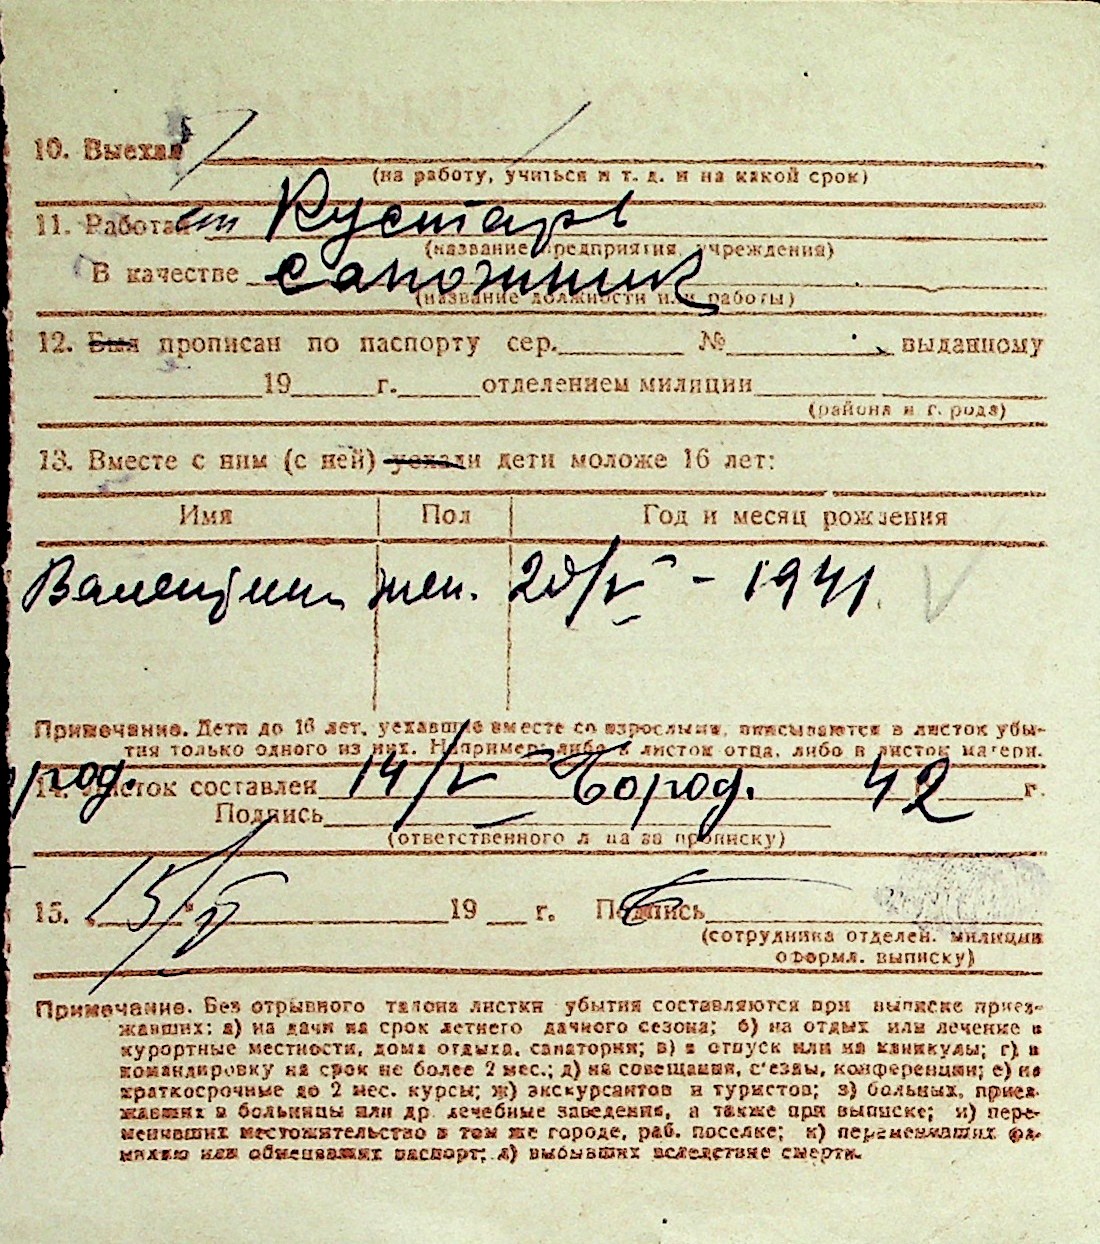 10. Выехал
(на работу, учиться и т. д. и на какой срок)
11. Работает Кустарь
(название предприятия, учреждения)
В качестве сапожник
(название должности или работы)
12. Был прописан по паспорту сер. № выданному
19 г. отделением милиции
(района и города)
13. Вместе с ним (с ней) уехали дети моложе 16 лет:
Имя Пол Год и месяц рождения
Валентина жен. 20/V - 1941
Примечание. Дети до 16 лет, уехавшие вместе со взрослыми, вписываются в листок убы-
тия только одного из них. Например: либо в листок отца, либо в листок матери.
14. Листок составлен 14/V 42 г.
Подпись
(ответственного лица за прописку)
15. 15/V 19 г. Подпись
(сотрудника отделен. милиции
оформл. выписку)
Примечание. Без отрывного талона листки убытия составляются при выписке приез-
жавших: а) на дачи на срок летнего дачного сезона; б) на отдых или лечение в
курортные местности, дома отдыха, санатории; в) в отпуск или на каникулы; г) в
командировку на срок не более 2 мес.; д) на совещания, с'езды, конференции; е) на
краткосрочные до 2 мес. курсы; ж) экскурсантов и туристов; з) больных, приез-
жавших в больницы или др. лечебные заведения, а также при выписке; и) пере-
менивших местожительство в том же городе, раб. поселке; к) переменивших фа-
милию или обменявших паспорт; л) выбывших вследствие смерти.